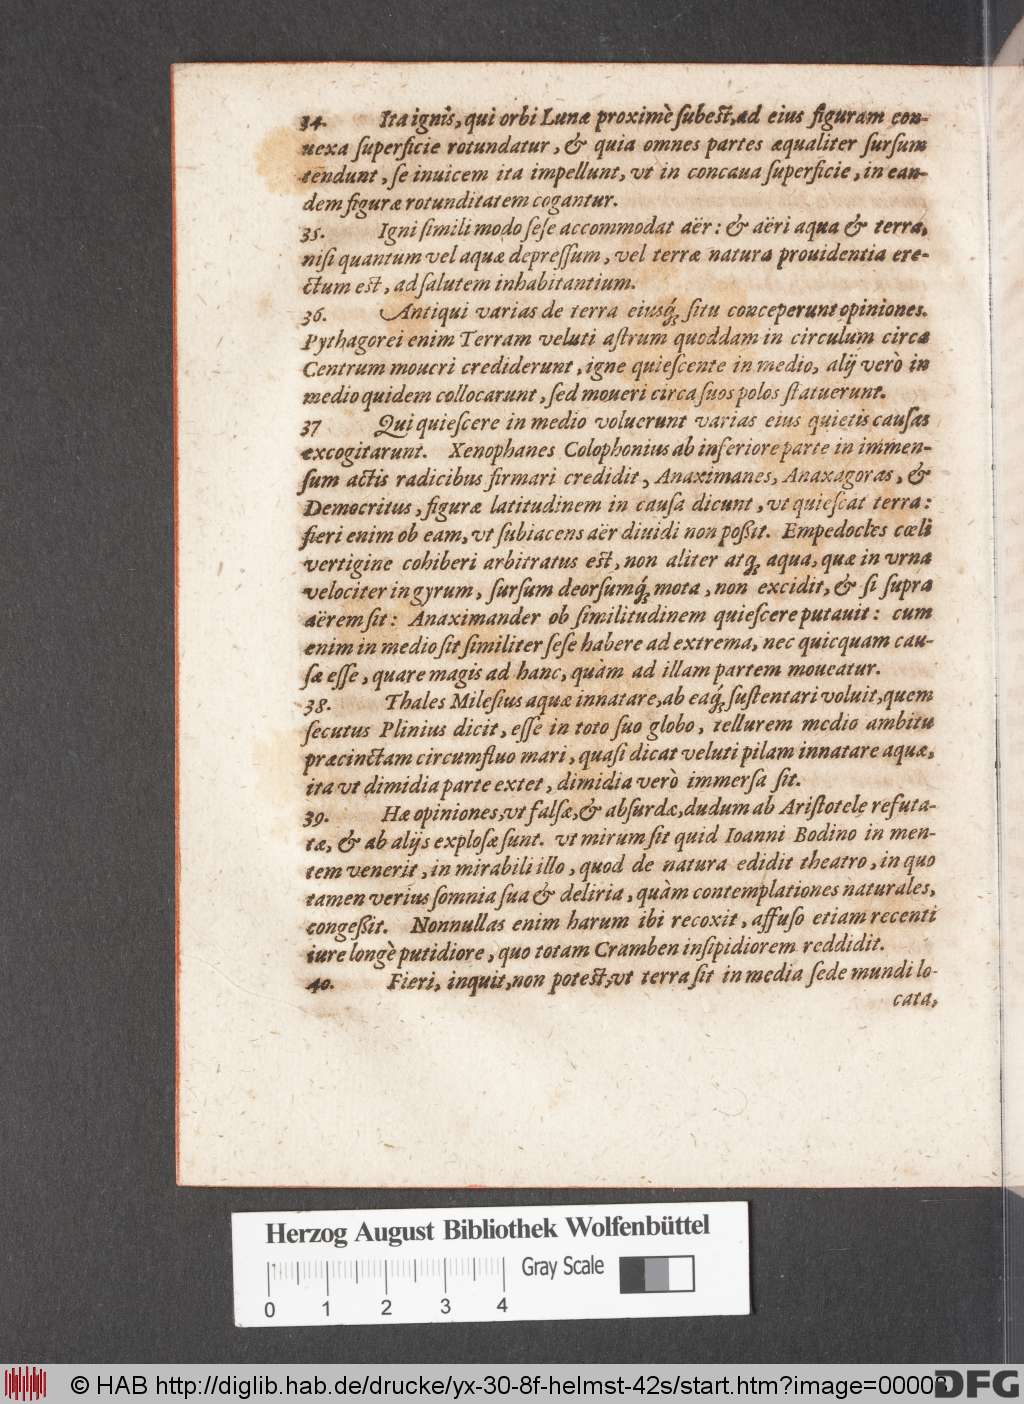 34. Ita ignis, qui orbi Lunæ proximè ſubest, ad eius figuram con-
uexa ſuperficie rotundatur, & quia omnes partes æqualiter ſurſum
tendunt, ſe inuicem ita impellunt, vt in concaua ſuperficie, in ean-
dem figuræ rotunditatem cogantur.
35. Igni ſimili modo ſeſe accommodat aër: & aëri aqua & terra,
niſi quantum vel aquæ depreſſum, vel terræ natura prouidentia ere-
ctum est, ad ſalutem inhabitantium.
36. Antiqui varias de terra eiusq́; ſitu conceperunt opiniones.
Pythagorei enim Terram veluti aſtrum quoddam in circulum circa
Centrum moueri crediderunt, igne quieſcente in medio, alij verò in
medio quidem collocarunt, ſed moueri circa ſuos polos ſtatuerunt.
37 Qui quieſcere in medio voluerunt varias eius quietis cauſas
excogitarunt. Xenophanes Colophonius ab inferiore parte in immen-
ſum actis radicibus firmari credidit, Anaximanes, Anaxagoras, &
Democritus, figuræ latitudinem in cauſa dicunt, vt quieſcat terra:
fieri enim ob eam, vt ſubiacens aër diuidi non poßit. Empedocles cœli
vertigine cohiberi arbitratus est, non aliter atq; aqua, quæ in vrna
velociter in gyrum, ſurſum deorſumq́; mota, non excidit, & ſi ſupra
aërem ſit: Anaximander ob ſimilitudinem quieſcere putauit: cum
enim in medio ſit ſimiliter ſeſe habere ad extrema, nec quicquam cau-
ſæ eſſe, quare magis ad hanc, quàm ad illam partem moueatur.
38. Thales Mileſius aquæ innatare, ab eaq́; ſuſtentari voluit, quem
ſecutus Plinius dicit, eſſe in toto ſuo globo, tellurem medio ambitu
præcinctam circumfluo mari, quaſi dicat veluti pilam innatare aquæ,
ita vt dimidia parte extet, dimidia verò immerſa ſit.
39. Hæ opiniones, vt falſæ, & abſurdæ, dudum ab Ariſtotele refuta-
tæ, & ab alijs exploſæ ſunt. vt mirum ſit quid Ioanni Bodino in men-
tem venerit, in mirabili illo, quod de natura edidit theatro, in quo
tamen verius ſomnia ſua & deliria, quàm contemplationes naturales,
congeßit. Nonnullas enim harum ibi recoxit, affuſo etiam recenti
iure longè putidiore, quo totam Cramben inſipidiorem reddidit.
40. Fieri, inquit, non potest, vt terra ſit in media ſede mundi lo-
cata,
Herzog August Bibliothek Wolfenbüttel
Gray Scale
0 1 2 3 4
© HAB http://diglib.hab.de/drucke/yx-30-8f-helmst-42s/start.htm?image=00008
DFG